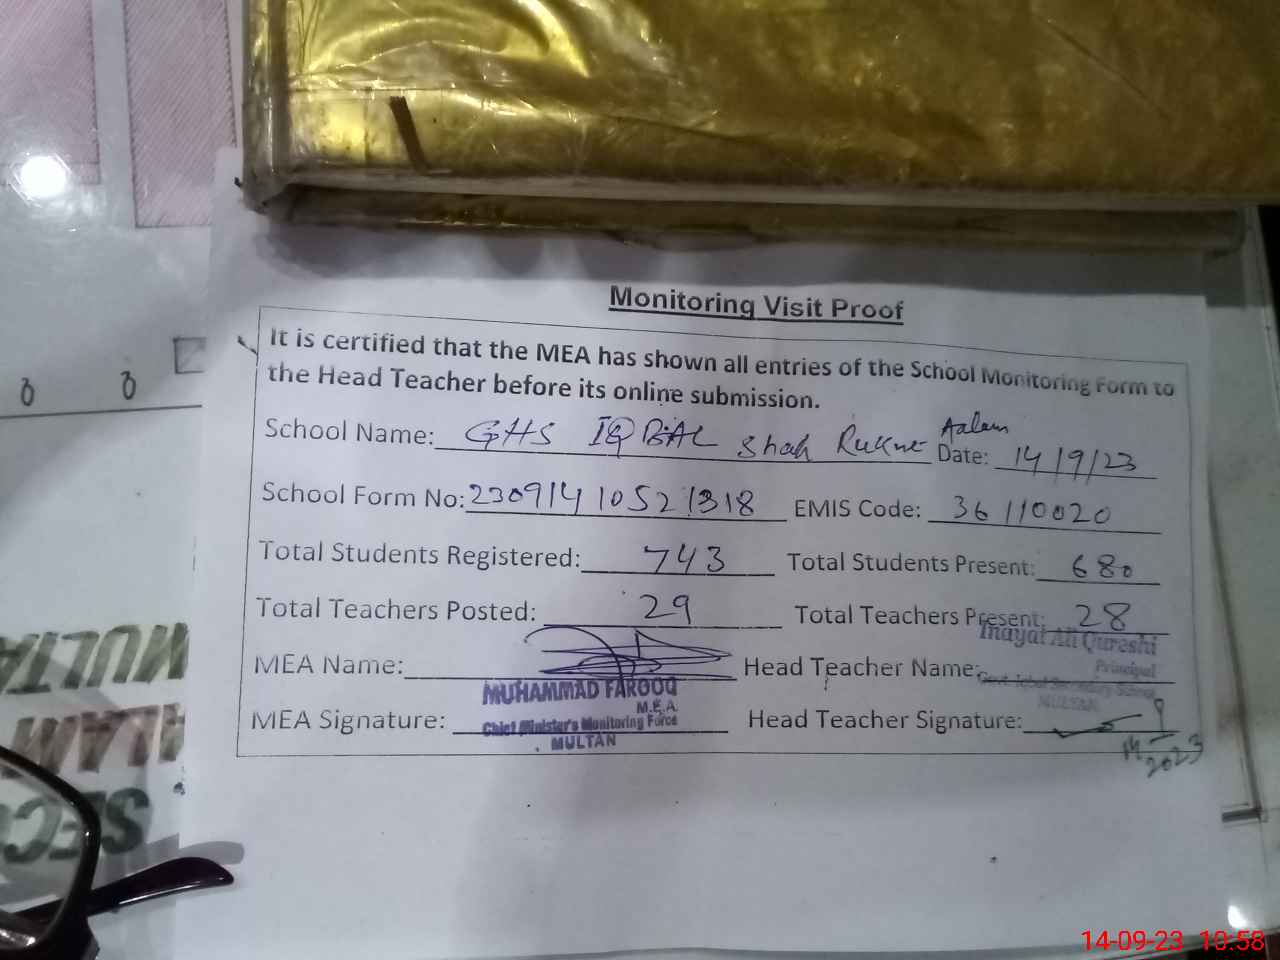 Monitoring Visit Proof
It is certified that the MEA has shown all entries of the School Monitoring Form to
the Head Teacher before its online submission.
School Name: GHS IQBAL Shah Rukne Aalam Date: 14/9/23
School Form No: 230914 10521318 EMIS Code: 36110020
Total Students Registered: 743 Total Students Present: 680
Total Teachers Posted: 29 Total Teachers Present: 28
MEA Name: Head Teacher Name:
Inayat Ali Qureshi
Principal
Govt. Iqbal Secondary School
MULTAN
MUHAMMAD FAROOQ
M.E.A.
Chief Minister's Monitoring Force
MULTAN
MEA Signature: Head Teacher Signature:
2023
MULTA
ALAM
SECO
14-09-23 10:58